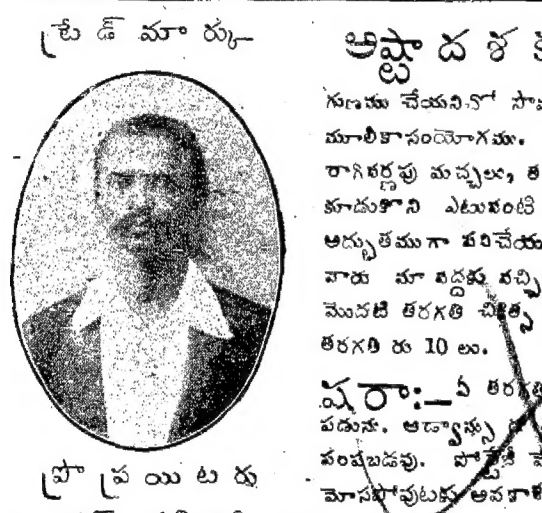 ట్రేడ్ మార్కు
అష్టాదశ
గుణము చేయనిచో
మూలికాసంయోగము.
రాగివర్ణపు మచ్చలు,
కూడుకొని ఎటువంటి
అద్భుతముగా పనిచేయు
వారు మా వద్దకు వచ్చి
మొదటి తరగతి చికిత్స
తరగతి రు 10 లు.
షరా:— ఏ తరగతి
పడును. ఆడ్వాన్సు
పంపబడవు. పోస్టేజి
మోసపోవుటకు అవకాశ
ప్రొప్రయిటరు